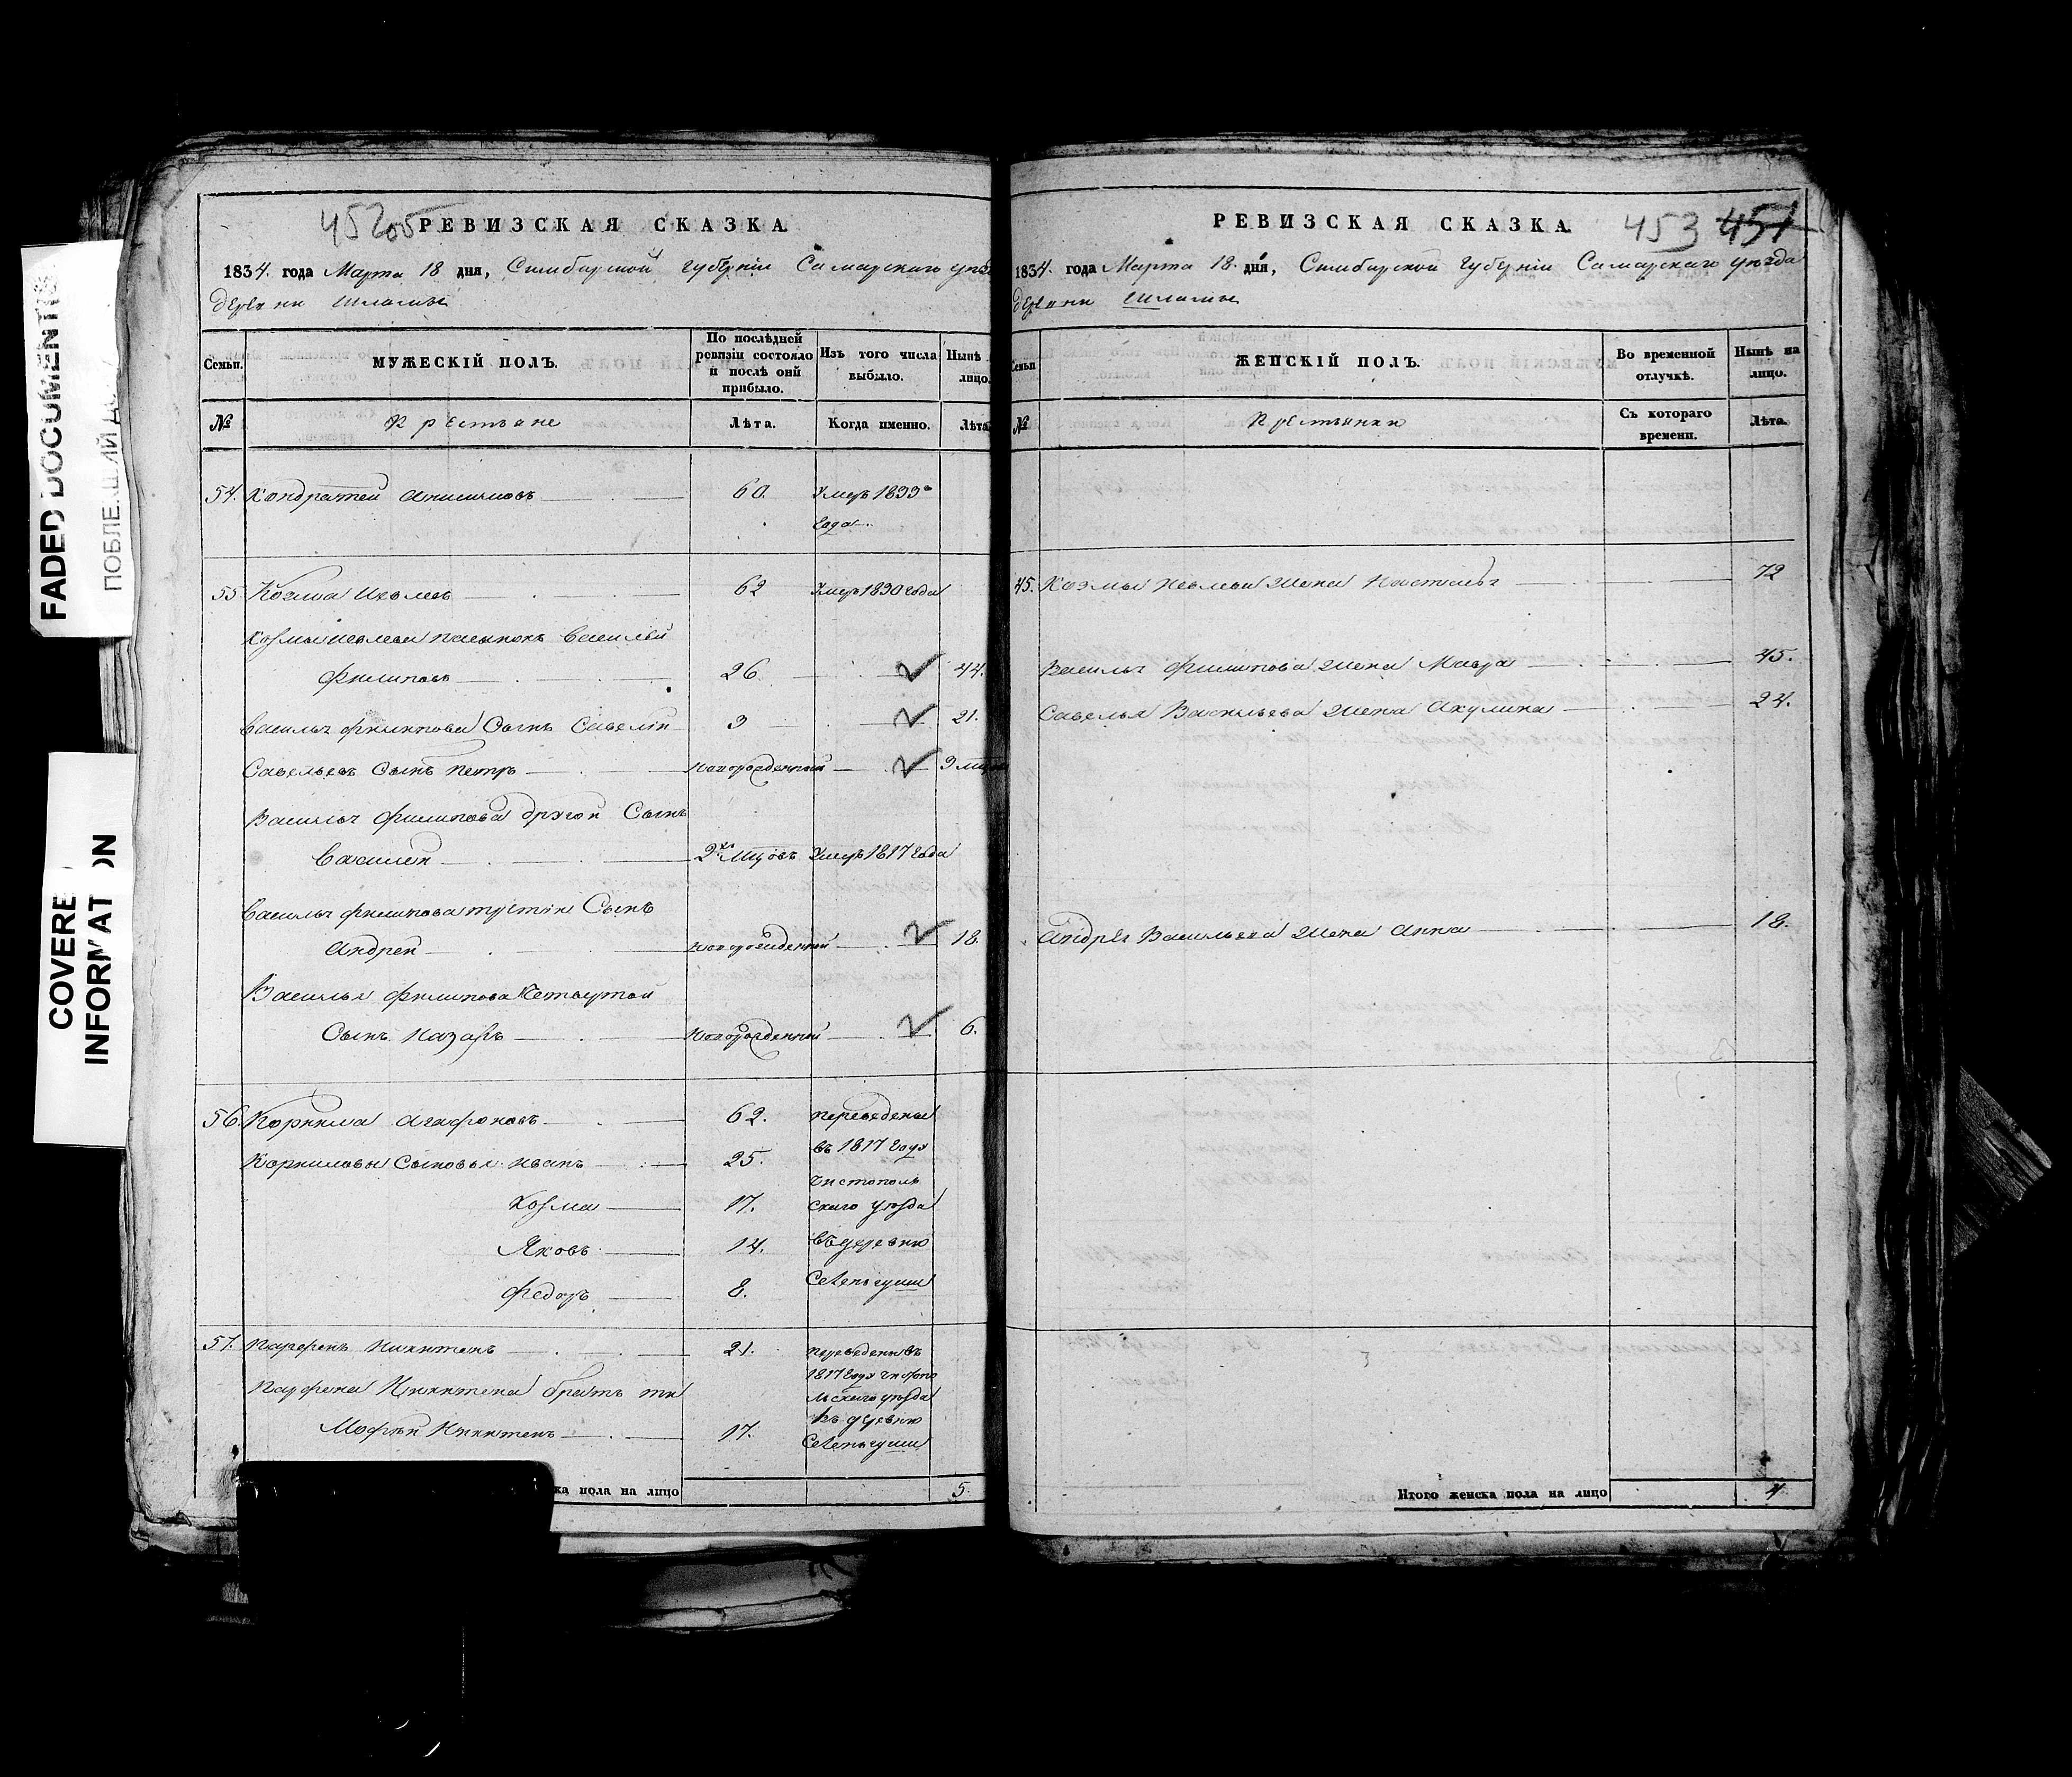 FADED DOCUMENTS
COVERE
INFORMAT ON
РЕВИЗСКАЯ СКАЗКА
1834. года Марта 18 дня, Симбирской губернiи Самарскаго уѣз
деревни Шламы
Семьи.
МУЖЕСКІЙ ПОЛЪ.
По послѣдней ревизіи состояло и послѣ оній прибыло.
Изъ того числа выбыло.
Нынѣ лицо.
№
Крестьяне
Лѣта.
Когда именно.
Лѣта
54. Кондратей Анисимовъ 60. Умеръ 1833
года
55 Козма Иевлевъ 62 Умеръ 1830 года
Козмы Иевлева пасынокъ Василей
Филиповъ 26 44.
Василья Филипова Сынъ Савелiй 3 21.
Савельевъ Сынъ Петръ Новорожденный 9
Василья Филипова другой Сынъ
Василей 2 Мцовъ Умеръ 1817 года
Василья Филипова третiй Сынъ
Андрей Новорожденный 18.
Василья Филипова Четвертой
Сынъ Назаръ Новорожденный 6.
56. Корнила Агафоновъ 62. переведены
Корниловы Сыновья Иванъ 25. въ 1817 году
Чистополь
Козма 17. скаго уѣзда
Яковъ 14. въ деревню
Федоръ 8.
57. Парфенъ Никитенъ 21. переведены въ
1817 году Чистопо
Парфена Никитена братъ льскаго уѣзда
въ деревню
Никитенъ 17.
ка пола на лицо 5
РЕВИЗСКАЯ СКАЗКА
453 451
1834. года Марта 18. дня, Симбирской губернiи Самарскаго уѣзда
деревни Шламы
Семьи
ЖЕНСКІЙ ПОЛЪ.
Во временной отлучкѣ.
Нынѣ на лицо.
№
Крестьянки
Съ котораго времени.
Лѣта.
Козмы Иевлева жена Настасья 72
Василья Филипова жена Мавра 45.
Савелья Васильева жена Акулина 24.
Андрея Васильева жена Анна 18.
Итого женска пола на лицо 4